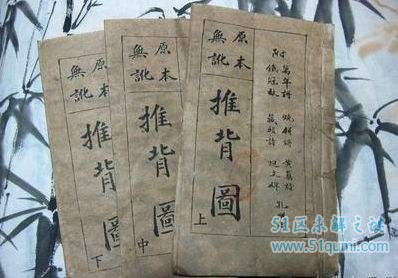 附
燒餅詩
黃蘗詩
藏頭詩
原本
無訛
推背圖
上
原本
無訛
推背圖
中
原本
無訛
推背圖
下
51区未解之谜
www.51qumi.com